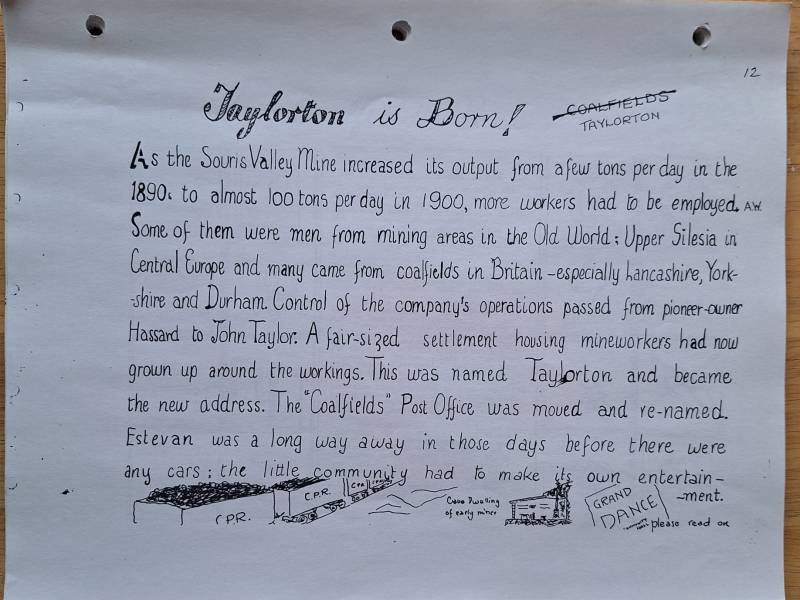 12
Taylorton is Born!
COALFIELDS
TAYLORTON
As the Souris Valley Mine increased its output from a few tons per day in the
1890s to almost 100 tons per day in 1900, more workers had to be employed. A.W.
Some of them were men from mining areas in the Old World: Upper Silesia in
Central Europe and many came from coalfields in Britain - especially Lancashire, York-
-shire and Durham. Control of the company's operations passed from pioneer-owner
Hassard to John Taylor. A fair-sized settlement housing mineworkers had now
grown up around the workings. This was named Taylorton and became
the new address. The "Coalfields" Post Office was moved and re-named.
Estevan was a long way away in those days before there were
any cars; the little community had to make its own entertain-
-ment.
C.P.R.
C.P.R.
C.P.R.
Cave Dwelling
of early miner
GRAND
DANCE
please read on